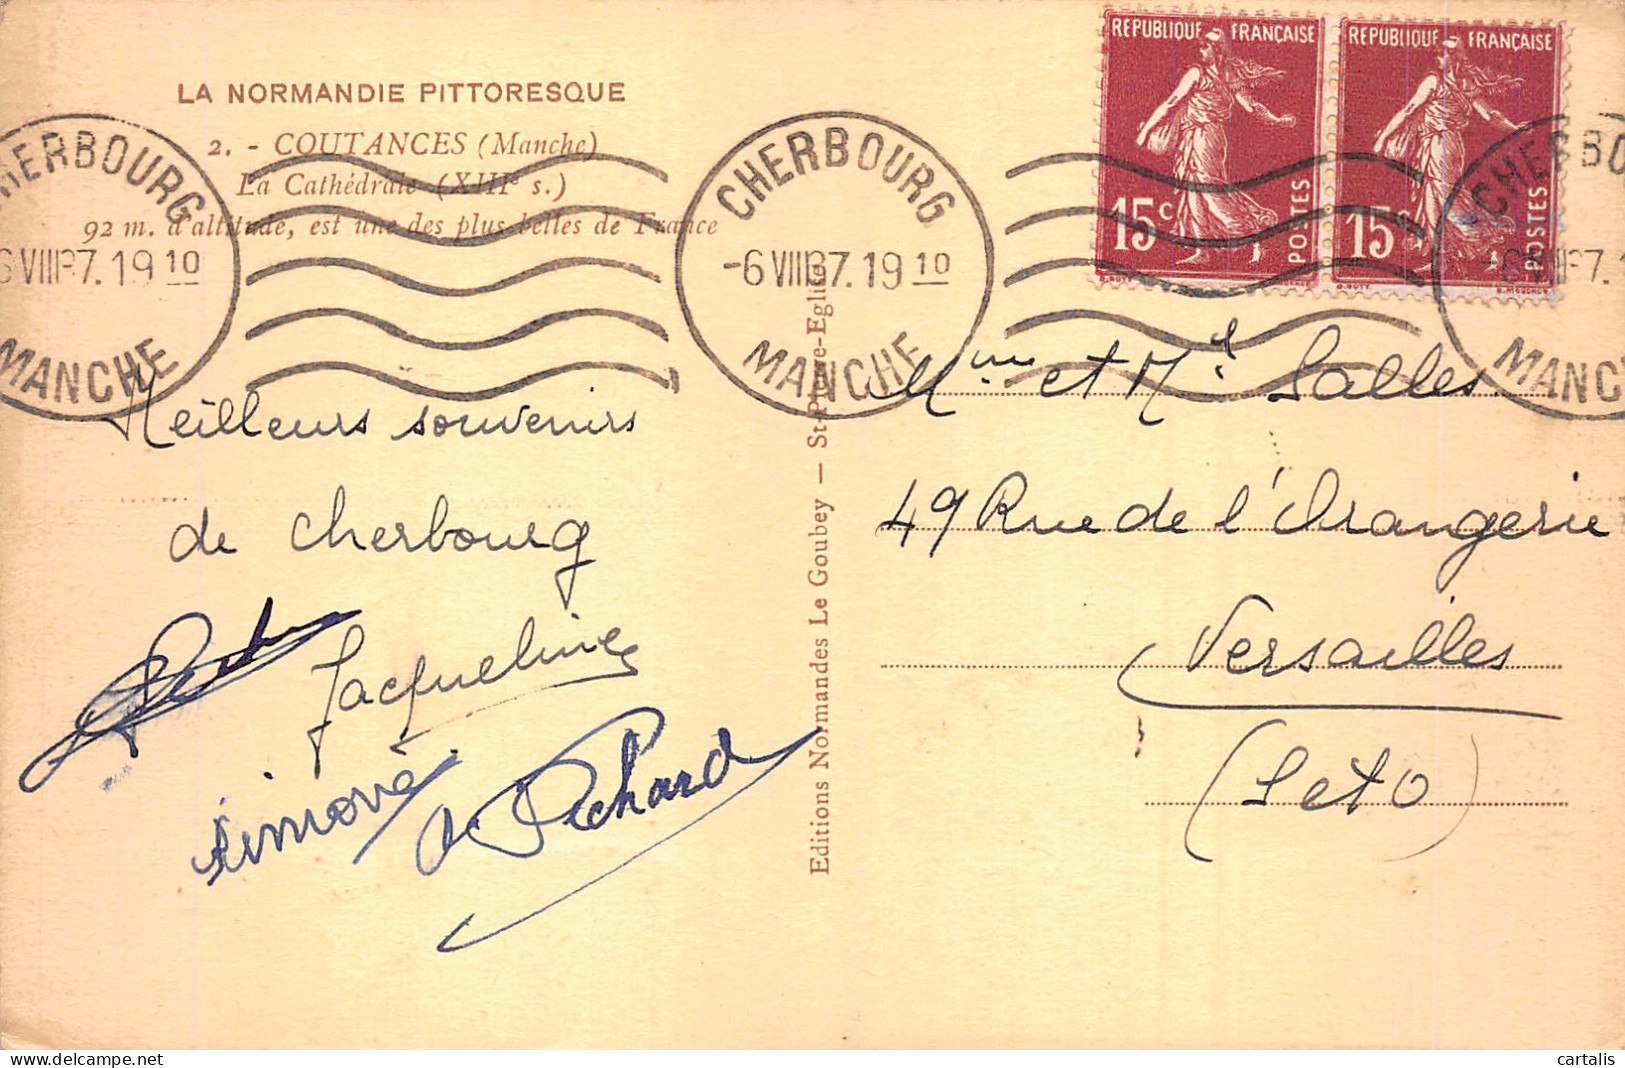 LA NORMANDIE PITTORESQUE
2. - COUTANCES (Manche)
La Cathédrale (XIIIe s.)
92 m. d'altitude, est une des plus belles de France
CHERBOURG
6 VIII 37. 19 10
MANCHE
CHERBOURG
-6 VIII 37. 19 10
MANCHE
REPUBLIQUE FRANÇAISE
15c
POSTES
REPUBLIQUE FRANÇAISE
15c
POSTES
CHERBO
-6 VIII 37. 1
MANC
Meilleurs souvenirs
de Cherbourg
Jacqueline
Simone
Pichard
Mme et Md Salles
49 Rue de l'Orangerie
Versailles
(Set O)
Editions Normandes Le Goubey — St-Pierre-Eglise
delcampe.net
cartalis